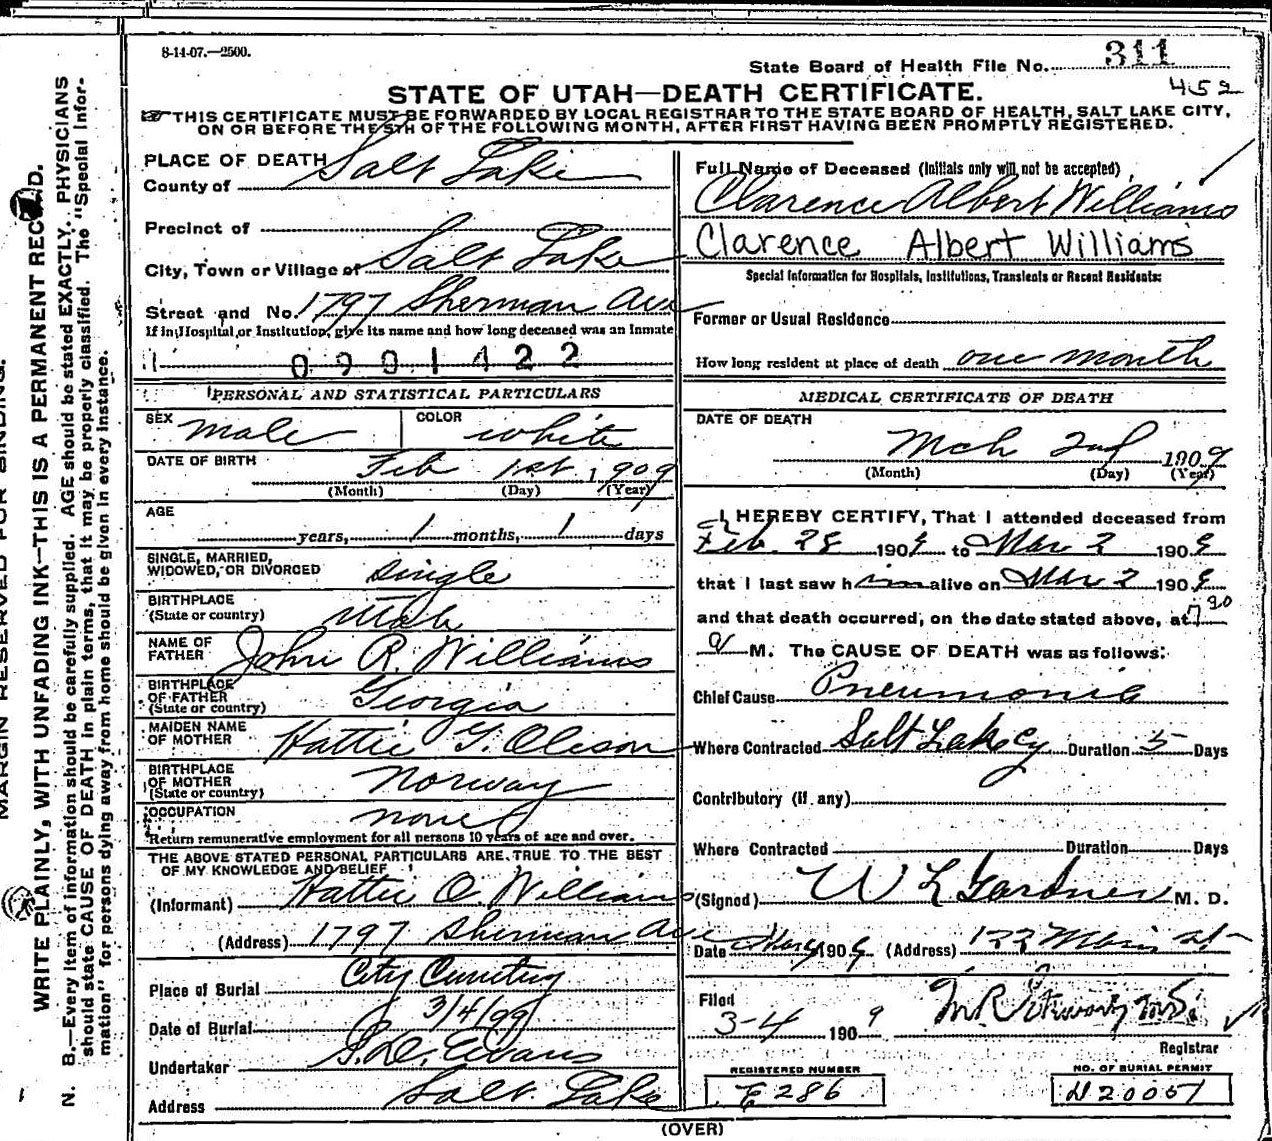 8-14-07.—2500.
State Board of Health File No. 311
452
STATE OF UTAH—DEATH CERTIFICATE.
THIS CERTIFICATE MUST BE FORWARDED BY LOCAL REGISTRAR TO THE STATE BOARD OF HEALTH, SALT LAKE CITY,
ON OR BEFORE THE 5TH OF THE FOLLOWING MONTH, AFTER FIRST HAVING BEEN PROMPTLY REGISTERED.
PLACE OF DEATH
County of Salt Lake
Precinct of
City, Town or Village of Salt Lake
Street and No. 1797 Sherman Ave
If in Hospital or Institution, give its name and how long deceased was an Inmate
0901422
PERSONAL AND STATISTICAL PARTICULARS
SEX male COLOR white
DATE OF BIRTH Feb 1st 1909
(Month) (Day) (Year)
AGE
years, 1 months, 1 days
SINGLE, MARRIED,
WIDOWED, OR DIVORCED single
BIRTHPLACE
(State or country) Utah
NAME OF
FATHER John R. Williams
BIRTHPLACE
OF FATHER
(State or country) Georgia
MAIDEN NAME
OF MOTHER Hattie G. Oleson
BIRTHPLACE
OF MOTHER
(State or country) Norway
OCCUPATION none
Return remunerative employment for all persons 10 years of age and over.
THE ABOVE STATED PERSONAL PARTICULARS ARE TRUE TO THE BEST
OF MY KNOWLEDGE AND BELIEF
(Informant) Hattie O. Williams
(Address) 1797 Sherman Ave
Place of Burial City Cemetery
Date of Burial 3/4/09
Undertaker S.D. Evans
Address Salt Lake
Full Name of Deceased (Initials only will not be accepted)
Clarence Albert Williams
Clarence Albert Williams
Special Information for Hospitals, Institutions, Transients or Recent Residents:
Former or Usual Residence
How long resident at place of death one month
MEDICAL CERTIFICATE OF DEATH
DATE OF DEATH
Mch 2nd 1909
(Month) (Day) (Year)
I HEREBY CERTIFY, That I attended deceased from
Feb. 28 1909 to Mar 2 1909
that I last saw him alive on Mar 2 1909
and that death occurred, on the date stated above, at 7 30
a M. The CAUSE OF DEATH was as follows:
Chief Cause Pneumonia
Where Contracted Salt Lake Cy Duration 5 Days
Contributory (if any)
Where Contracted Duration Days
(Signed) W L Gardner M. D.
Date 1909 (Address) Main st
Filed
3-4 1909
Registrar
REGISTERED NUMBER
E 286
NO. OF BURIAL PERMIT
(OVER)
MARGIN RESERVED FOR BINDING.
WRITE PLAINLY, WITH UNFADING INK—THIS IS A PERMANENT RECORD.
N. B.—Every item of information should be carefully supplied. AGE should be stated EXACTLY. PHYSICIANS
should state CAUSE OF DEATH in plain terms, that it may be properly classified. The "Special Infor-
mation" for persons dying away from home should be given in every instance.